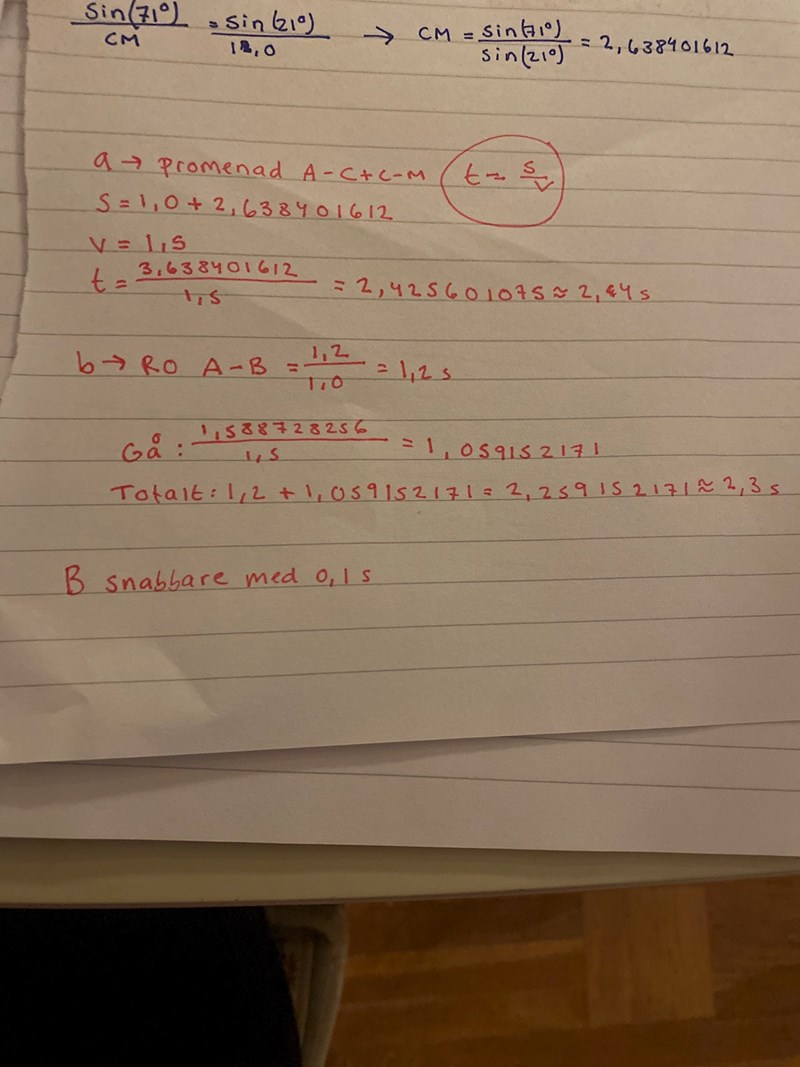 sin(71°)/CM = sin(21°)/1,0 → CM = sin(71°)/sin(21°) = 2,638401612
a → promenad A-C+C-M t = s/v
S = 1,0 + 2,638401612
V = 1,5
t = 3,638401612/1,5 = 2,425601075 ≈ 2,4 s
b → RO A-B = 1,2/1,0 = 1,2 s
Gå: 1,588728256/1,5 = 1,059152171
Totalt: 1,2 + 1,059152171 = 2,259152171 ≈ 2,3 s
B snabbare med 0,1 s